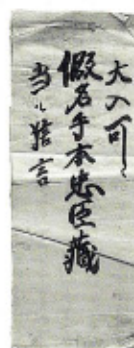 大入可
假名手本忠臣藏
当ル狂言